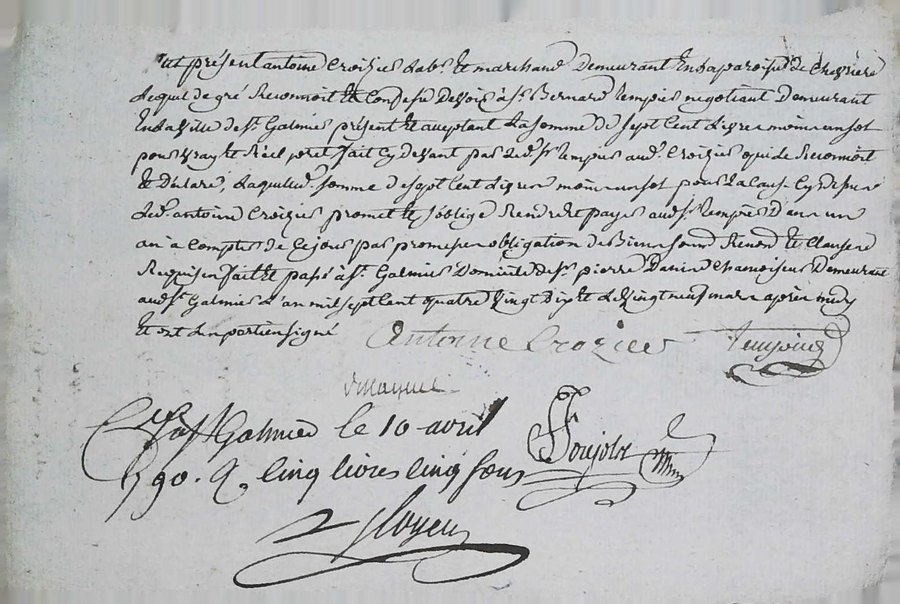 fut présent antoine Croizier lab.r Et marchand Demeurant En la paroisse de Chevriere
Lequel de gré Reconnoit Et Confesse Devoir à Sr. Bernard tempier negotiant Demeurant
En la ville de St. Galmier présent Et acceptant La somme De sept Cent Livres moins un sol
pour vray Et Réel pret fait Cy devant par Led. Sr tempier aud. Croizier qui le Reconnoit
Et Déclare, Laquelle somme de sept Cent Livres moins un sol pour La cause Cy dessus
Led. antoine Croizier promet Et s'oblige Rendre Et payer aud. Sr tempier Dans un
an à Compter de Ce jour par promesse obligation de Biens soumd Renond Et Clause
Requise fait Et passé à St. Galmier Domicile de Sr. pierre Chamoiseur Demeurant
aud. St. Galmier L'an mil sept Cent quatre Vingt Dix Et Le Vingt neuf mars après midy
Et ont Les parties signé
Antoine Crozier tempier
à St Galmier le 10 avril
1790. R. cinq livres cinq sous